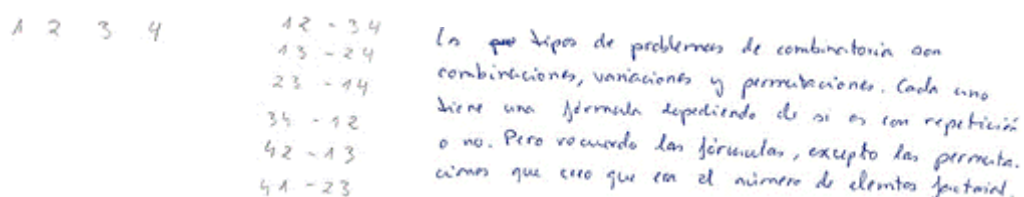 1 2 3 4
12 - 34
13 - 24
23 - 14
34 - 12
42 - 13
41 - 23
Los tipos de problemas de combinatoria son
combinaciones, variaciones y permutaciones. Cada uno
tiene una fórmula depediendo de si es con repetición
o no. Pero recuerdo las fórmulas, excepto las permuta.
ciones que creo que era el número de elemtos factorial.